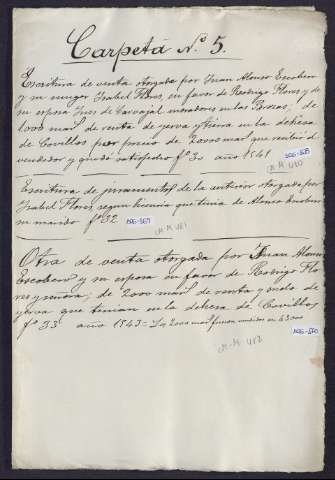 Carpeta Nº. 5.
Escritura de venta otorgada por Juan Alonso Escobero
y su muger Isabel Flores, en favor de Rodrigo Flores y de
su esposa Ines de Carvajal moradores en las Brozas; de
1,000 mail de renta de yerva y tierra en la dehesa
de Covillos por precio de mail que recibió el
vendedor y quedó satisfecho fº 30 año 1541.
M-M 480
Escritura de juramento de la anterior otorgada por
Isabel Flores segun licencia que tenia de Alonso Escobero
su marido fº 32
M-M 481
Otra de venta otorgada por Juan Alonso
Escobero y su esposa en favor de Rodrigo Flo
res y señora; de 2000 mail de renta y onda de
yerva que tenian en la dehesa de Covillos
fº 33 año 1543 = Los 2000 mail fueron vendidos en
M-M 482